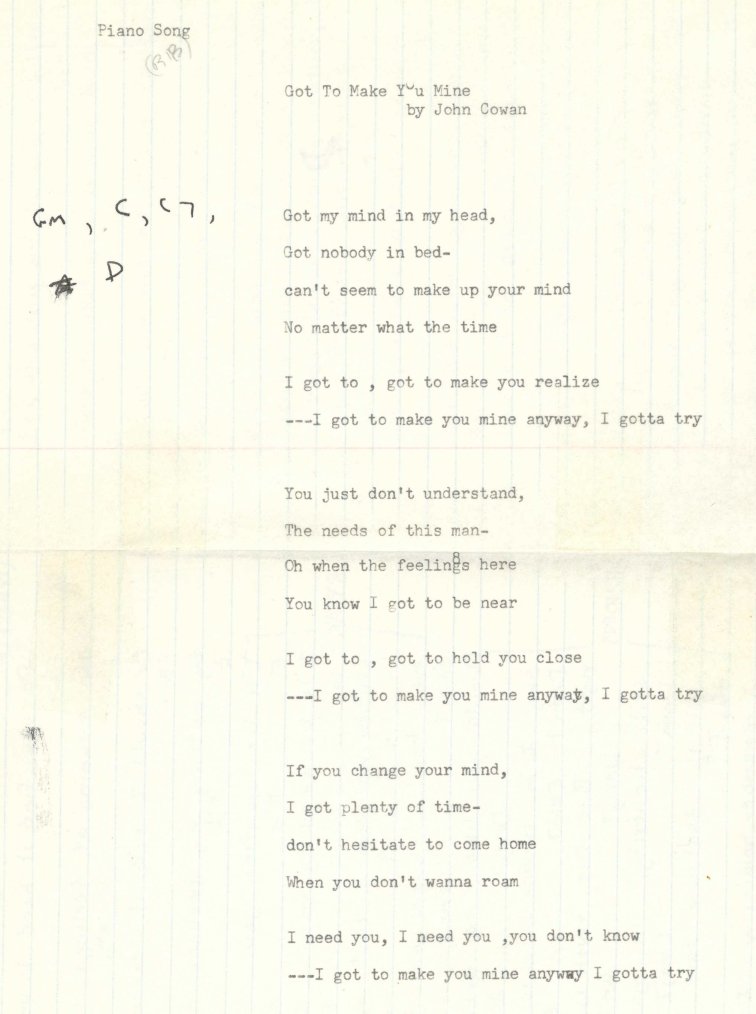 Piano Song
(RB)
Got To Make You Mine
by John Cowan
Gm, C, C7,
D
Got my mind in my head,
Got nobody in bed-
can't seem to make up your mind
No matter what the time
I got to , got to make you realize
---I got to make you mine anyway, I gotta try
You just don't understand,
The needs of this man-
Oh when the feelings here
You know I got to be near
I got to , got to hold you close
---I got to make you mine anyway, I gotta try
If you change your mind,
I got plenty of time-
don't hesitate to come home
When you don't wanna roam
I need you, I need you ,you don't know
---I got to make you mine anyway I gotta try